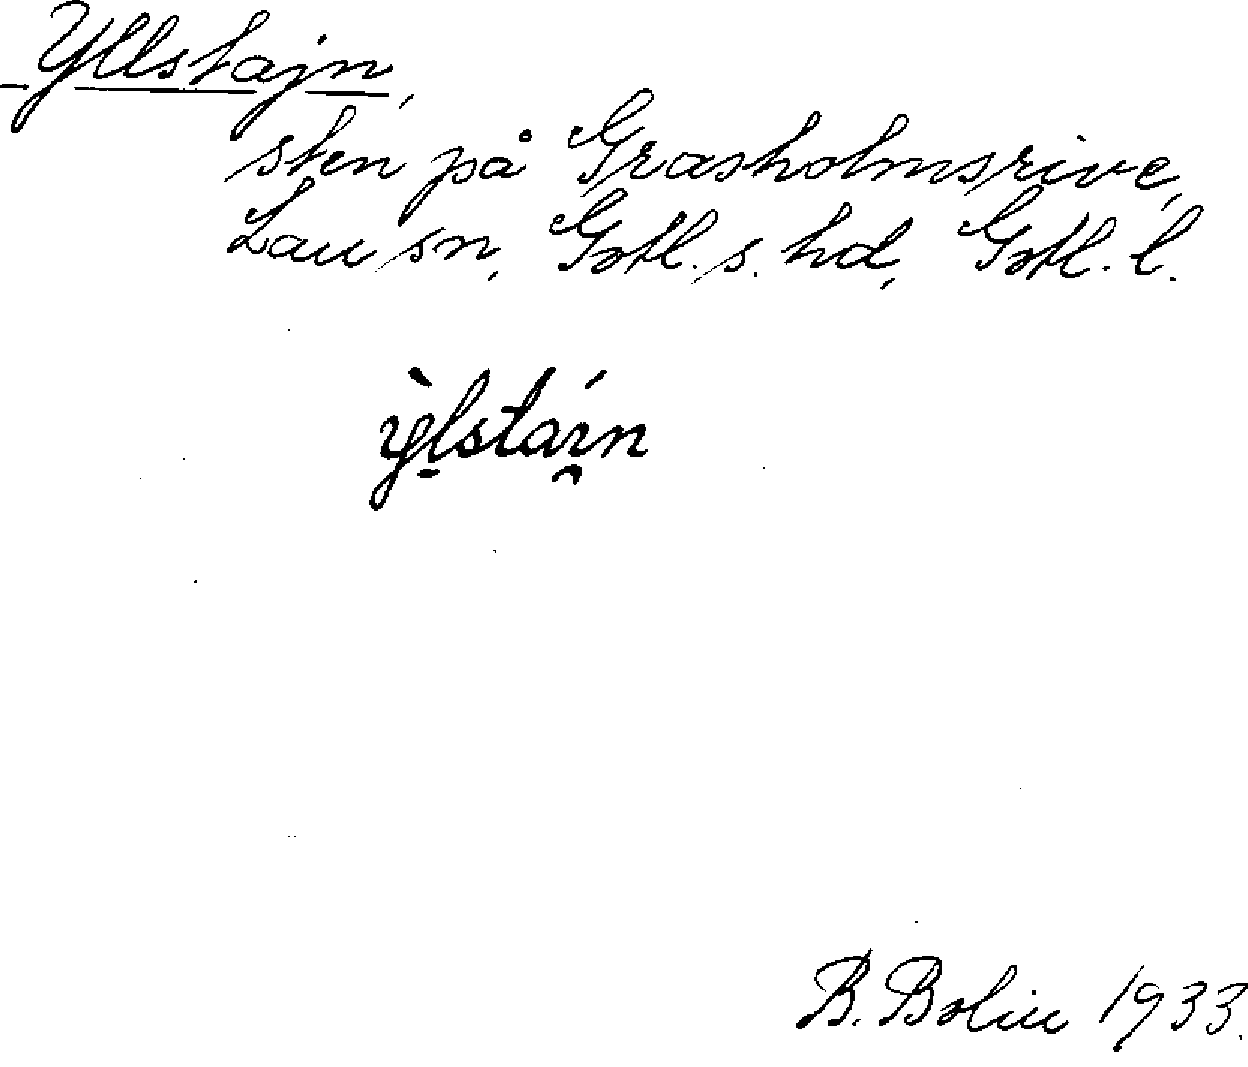 Yllstajn,
sten på Grasholmsrive,
Lau sn, Gotl. s. hd, Gotl. l.
ỳl̠stái̯n
B. Bolin 1933.